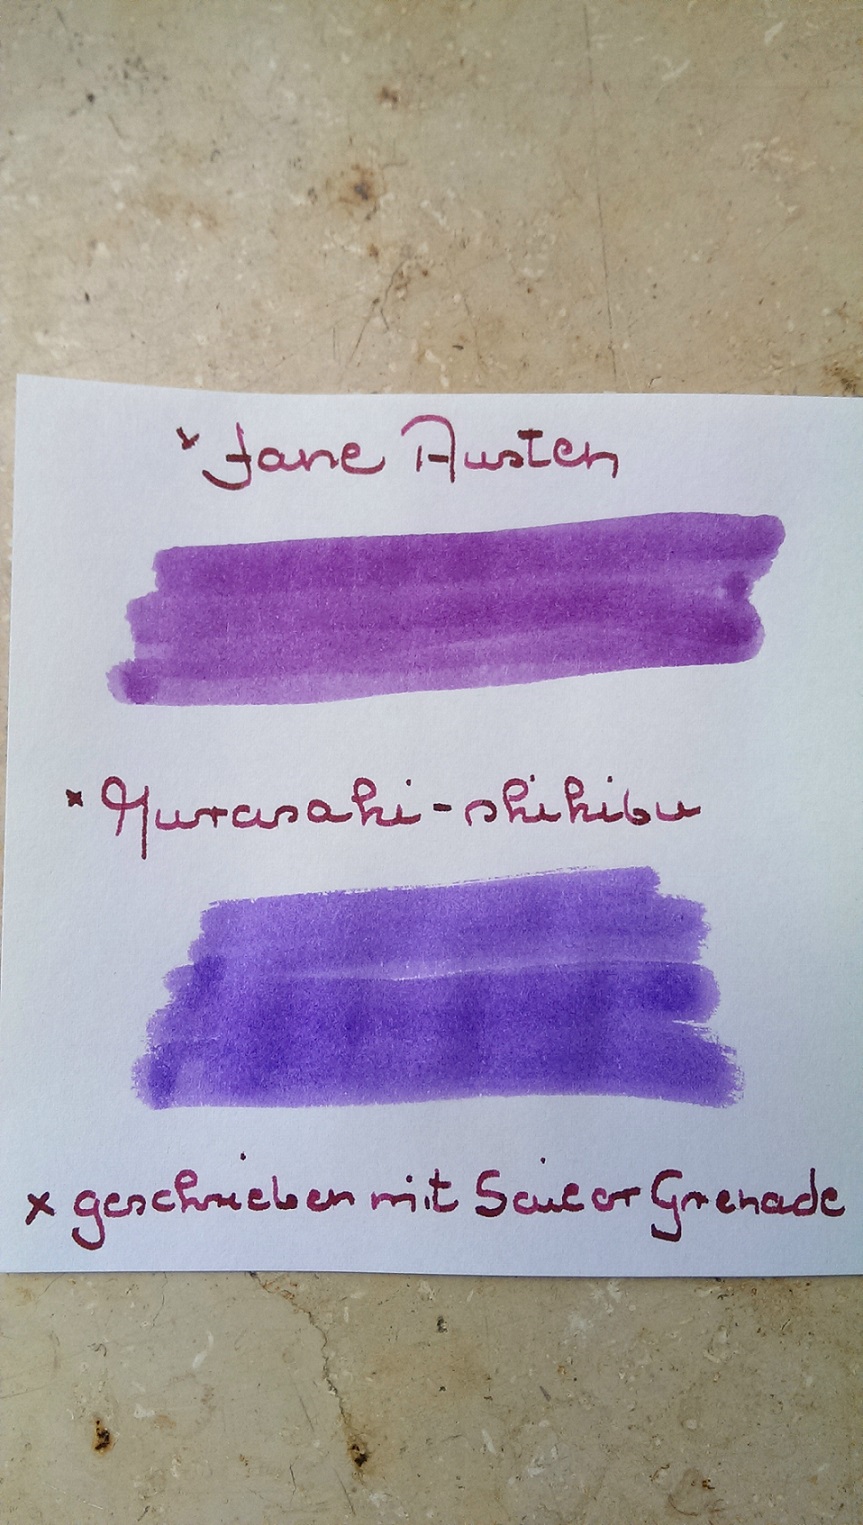 x Jane Austen
x Murasaki-shikibu
x geschrieben mit Sailor Grenade